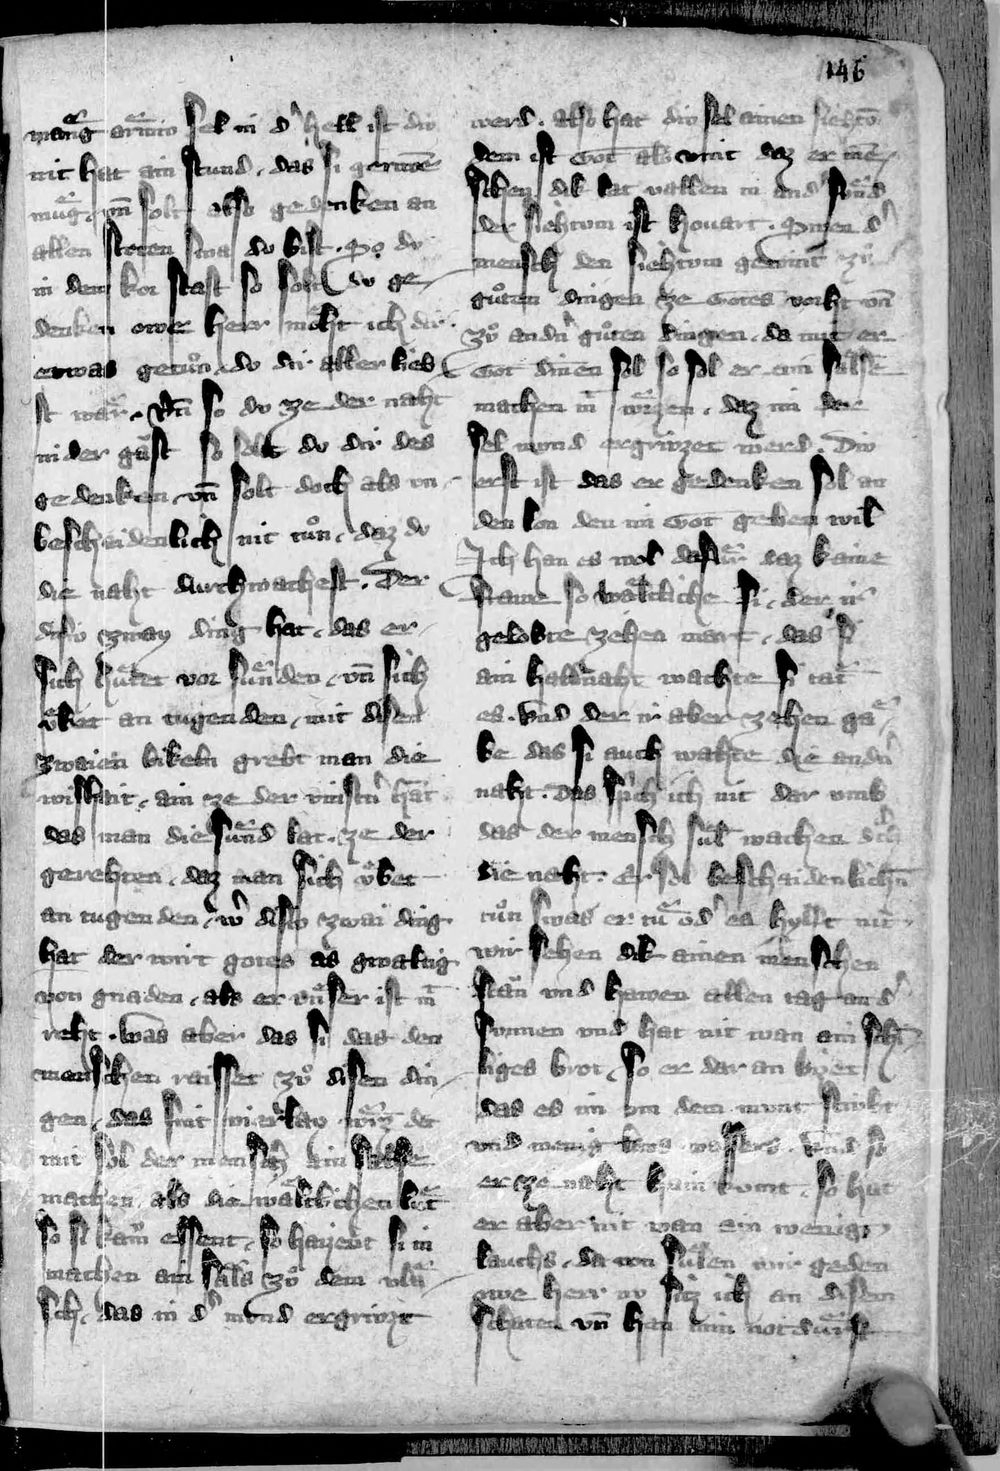 146
mang armiv sel in d' hell ist div
nit hat ain stund. das si geruwe
mug. vn solt also gedenken an
allen steten swa dv bist. So dv
in dem kor stast so solt dv ge-
denken owe herr moht ich dir
etwas getuon. dv dir aller lieb
st wär. Vn so dv ze der naht
nider gast so solt dv dir des
gedenken. vn solt doch als vn-
beschaidenlich nit tuon. daz dv
die naht durchwachest. Der
disiv zway ding hat. das er
sich hütet vor sünden. vn sich
übet an tugenden. mit disen
zwaien bikeln grebt man die
wishait. ain ze der vinstern hat
das man die sünd lat. ze der
gerehten. daz man sich übet
an tugenden. w' disiv zwai ding
hat der wirt gotes as gwaltig
von gnaden. als er vnser ist
reht. Was aber das si das den
menschen raisset zuo disen din-
gen. das sint vierlay würz der
mit sol der mensch ain salse
machen. als die wältlichen lüt
so si kain essent. so haizent si in
machen ain sals zuo dem vlai-
sch. das in d' mund ergrivzit
werd. also hat div sel ainen siehtom
dem ist Got als vint daz er men-
schen dik lat vallen in and' sünd
der siehtvm ist hovart. Swen d'
mensch den siehtvm gewint zuo
guoten dingen ze Gotes vorht vn
zuo andn guoten dingen. da mit er
Got dinen sol so sol er ain salse
machen würzen. daz im der
sel mund ergrivzet werd. Div
erst ist das er gedenken sol an
den lon den im Got geben wil
Ich han es wol dafür daz kaine
frawe so wältliche si. der ir
gelobte zehen mark. das si
ain halbnaht wachte si tät
es. Vnd der ir aber zehen gä-
be das si auch wahte die andn
naht. Das sprich ich nit dar vmb
das der mensch sul wachen
die naht. Er sol beschaidenlichen
tuon swas er tu od' es hilft nit
wir sehen dik ainen menschen
stan vnd hawen allen tag an d'
sunnen vnd hat nit wan ain
liges brot. So er dar an bizet
das es im vm dem mvnt stubt
vnd wenig kus wassers. Vnd so
er ze naht hain kumt. so hat
er aber nit wan ain wenig
lauchs. da von sülen wir geden
owe herr nv sitz ich an disem
schaten vn han min notdurft